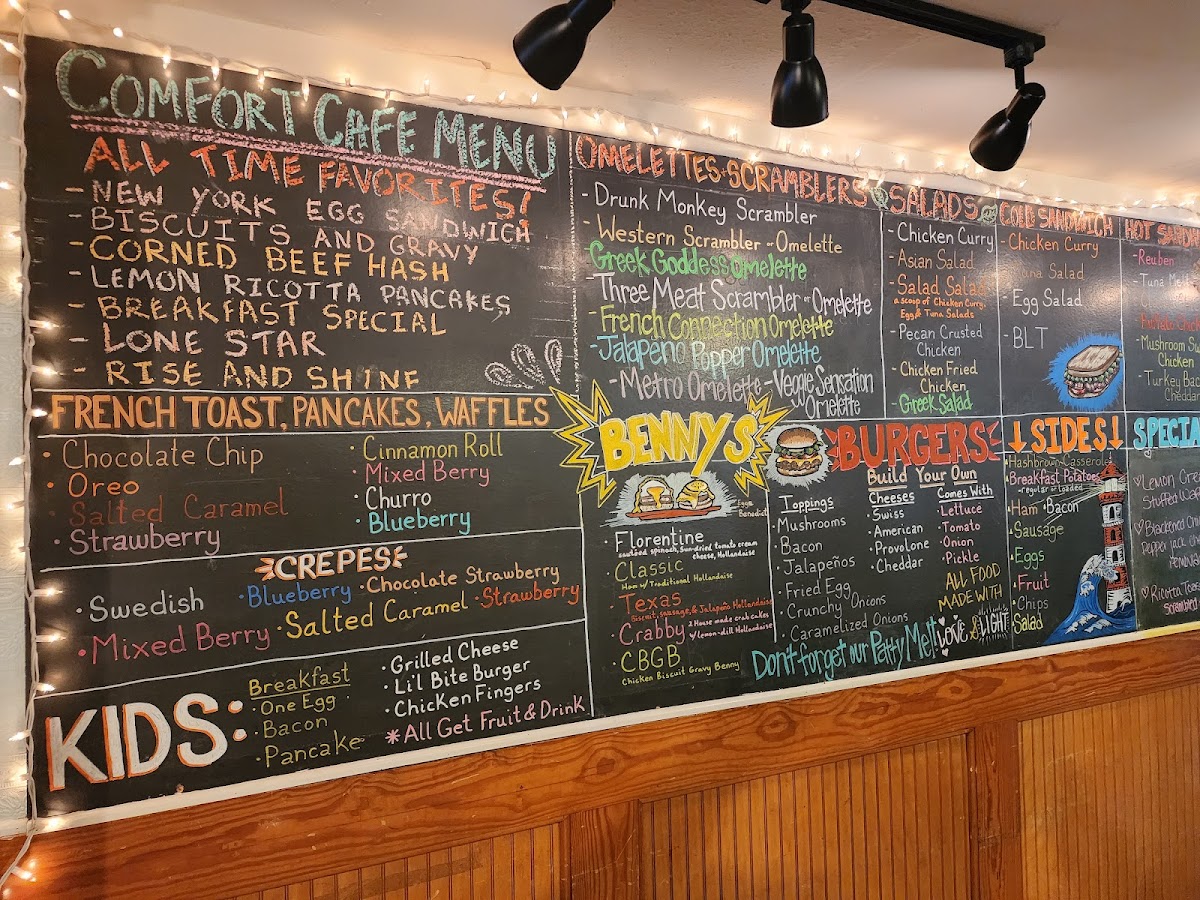 COMFORT CAFE MENU
ALL TIME FAVORITES!
- NEW YORK EGG SANDWICH
- BISCUITS AND GRAVY
- CORNED BEEF HASH
- LEMON RICOTTA PANCAKES
- BREAKFAST SPECIAL
- LONE STAR
- RISE AND SHINE
FRENCH TOAST, PANCAKES, WAFFLES
• Chocolate Chip
• Oreo
• Salted Caramel
• Strawberry
• Cinnamon Roll
• Mixed Berry
• Churro
• Blueberry
CREPES
• Swedish
• Blueberry
• Chocolate Strawberry
• Mixed Berry
• Salted Caramel
• Strawberry
KIDS:
Breakfast
• One Egg
• Bacon
• Pancake
• Grilled Cheese
• Li'l Bite Burger
• Chicken Fingers
*All Get Fruit & Drink
OMELETTES + SCRAMBLERS
- Drunk Monkey Scrambler
- Western Scrambler or Omelette
- Greek Goddess Omelette
- Three Meat Scrambler or Omelette
- French Connection Omelette
- Jalapeño Popper Omelette
- Metro Omelette - Veggie Sensation
Omelette
BENNYS
Eggs
Benedict
• Florentine
sauteed spinach, sun-dried tomato cream
cheese, Hollandaise
• Classic
Ham w/ Traditional Hollandaise
• Texas
Biscuit, sausage, & Jalapeño Hollandaise
• Crabby
2 House made crab cakes
w/ lemon-dill Hollandaise
• CBGB
Chicken Biscuit Gravy Benny
SALADS
- Chicken Curry
- Asian Salad
- Salad Salad
a scoop of Chicken Curry,
Egg & Tuna Salads
- Pecan Crusted
Chicken
- Chicken Fried
Chicken
- Greek Salad
COLD SANDWICH
- Chicken Curry
- Tuna Salad
- Egg Salad
- BLT
HOT
- Reuben
- Tuna
- Mushroom
Chicken
- Turkey
Cheddar
BURGERS
Build Your Own
Toppings
• Mushrooms
• Bacon
• Jalapeños
• Fried Egg
• Crunchy Onions
• Caramelized Onions
Cheeses
• Swiss
• American
• Provolone
• Cheddar
Comes With
• Lettuce
• Tomato
• Onion
• Pickle
ALL FOOD
MADE WITH
LOVE & LIGHT
Don't forget our Patty Melt!
↓SIDES↓
• Hashbrown Casserole
• Breakfast Potatoes
- regular or loaded
• Ham • Bacon
• Sausage
• Eggs
• Fruit
• Chips
• Salad
Lemon
Stuffed
Blackened
Pepper Jack
Ricotta,